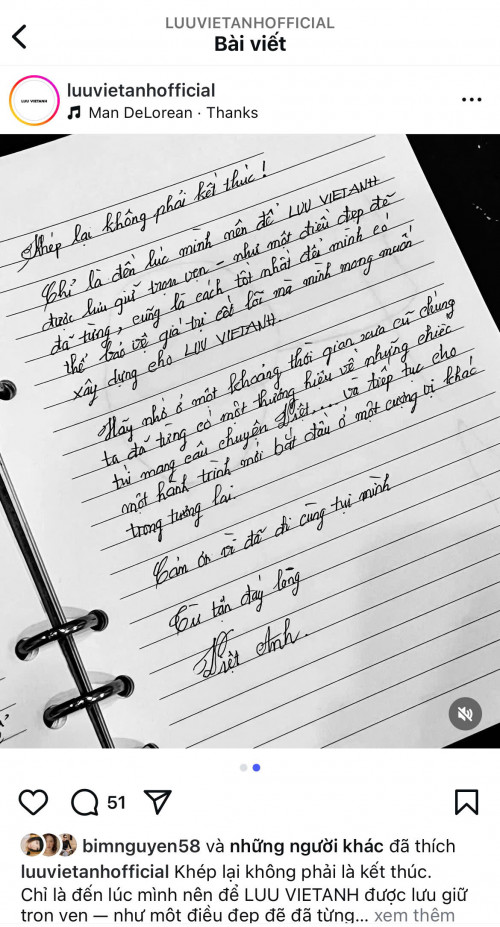 LUUVIETANHOFFICIAL
Bài viết
LUU VIETANH
luuvietanhofficial
Man DeLorean · Thanks
Khép lại không phải kết thúc!
Chỉ là đến lúc mình nên để LUU VIETANH
được lưu giữ trọn vẹn - như một điều đẹp đẽ
đã từng, cũng là cách tốt nhất để mình có
thể bảo vệ giá trị cốt lõi mà mình mong muốn
xây dựng cho LUU VIETANH.
Hãy nhớ ở một khoảng thời gian xưa cũ chúng
ta đã từng có một thương hiệu về những chiếc
túi mang câu chuyện Việt.... và tiếp tục cho
một hành trình mới bắt đầu ở một cương vị khác
trong tương lai.
Cảm ơn vì đã đi cùng tụi mình
Từ tận đáy lòng
Việt Anh.
51
bimnguyen58 và những người khác đã thích
luuvietanhofficial Khép lại không phải là kết thúc.
Chỉ là đến lúc mình nên để LUU VIETANH được lưu giữ
trọn vẹn — như một điều đẹp đẽ đã từng... xem thêm